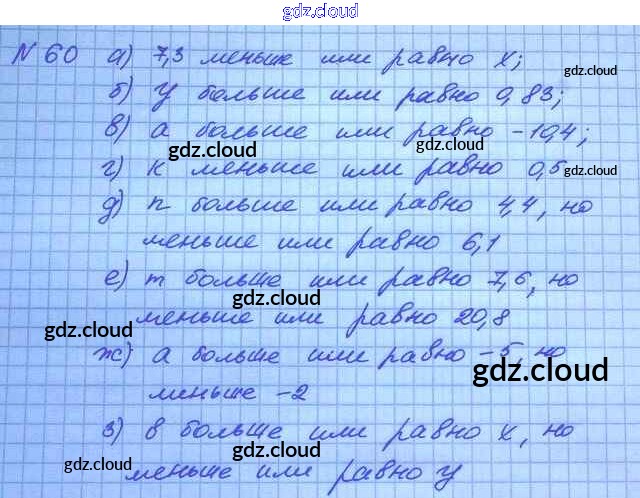 gdz.cloud
N 60 а) 7,3 меньше или равно х;
gdz.cloud
б) у больше или равно 0,83;
в) а больше или равно -10,4;
gdz.cloud gdz.cloud
г) к меньше или равно 0,5
gdz.cloud
д) n больше или равно 4,4, но
меньше или равно 6,1
е) m больше или равно 7,6, но
gdz.cloud
меньше или равно 20,8
gdz.cloud
ж) а больше или равно -5, но
gdz.cloud
меньше -2
з) в больше или равно х, но
gdz.cloud gdz.cloud
меньше или равно у